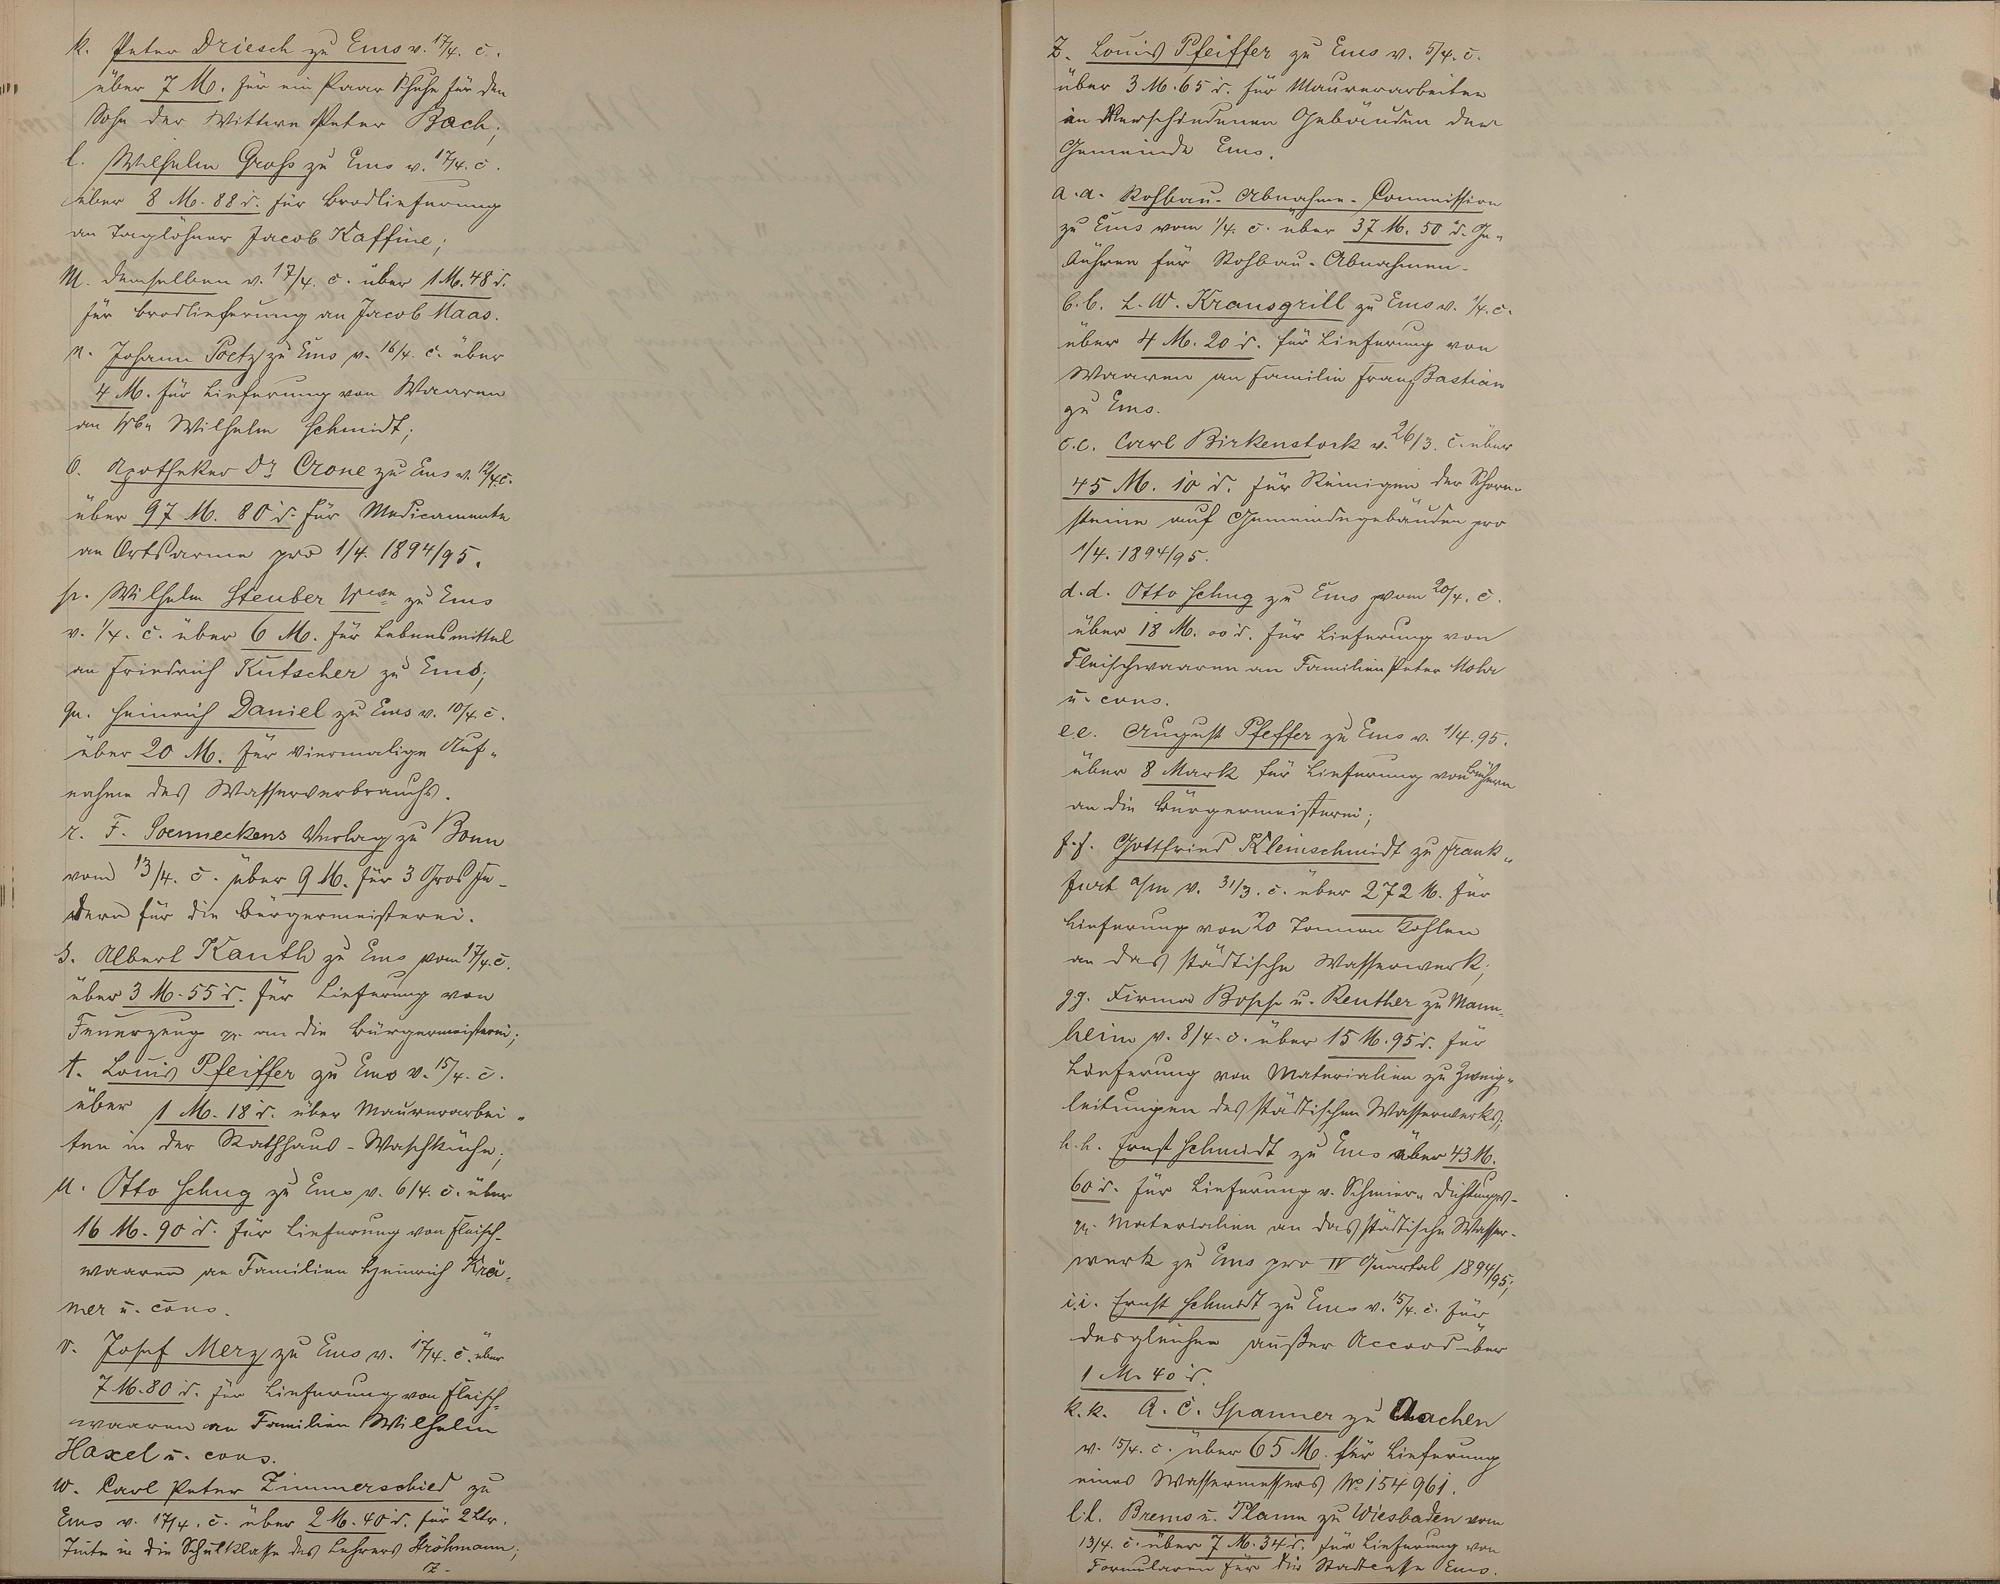 k. Peter Driesch zu Ems v. 17/4. c.
über 7 M. für ein Paar Schuhe für den
Sohn der Wittwe Peter Bach;
l. Wilhelm Groß zu Ems v. 17/4. c.
über 8 M. 88 d. für Brodlieferung
an Taglöhner Jacob Kaffine;
m. demselben v. 17/4. c. über 1 M. 48 d.
für Brodlieferung an Jacob Maas.
n. Johann Poetz zu Ems v. 16/4. c. über
4 M. für Lieferung von Waaren
an Wilhelm Schmidt;
o. Apotheker Dr. Crone zu Ems v. 12/4. c.
über 97 M. 80 d. für Medicamente
an Ortsarme pro 1/4. 1894/95.
p. Wilhelm Steuber Wwe. zu Ems
v. 1/4. c. über 6 M. für Lebensmittel
an Friedrich Kutscher zu Ems;
q. Heinrich Daniel zu Ems v. 10/4. c.
über 20 M. für viermalige Auf-
nahme des Wasserverbrauchs.
r. F. Soenneckens Verlag zu Bonn
vom 13/4. c. über 9 M. für 3 Gros Fe-
dern für die Bürgermeisterei.
s. Albert Kauth zu Ems vom 17/4. c.
über 3 M. 55 d. für Lieferung von
Feuerzeug p. an die Bürgermeisterei;
t. Louis Pfeiffer zu Ems v. 15/4. c.
über 1 M. 18 d. über Maurerarbei-
ten in der Rathhaus-Waschküche;
u. Otto Schug zu Ems v. 6/4. c. über
16 M. 90 d. für Lieferung von Fleisch-
waaren an Familien Heinrich Krä-
mer u. cons.
v. Josef Merz zu Ems v. 17/4. c. über
7 M. 80 d. für Lieferung von Fleisch-
waaren an Familien Wilhelm
Haxel u. cons.
w. Carl Peter Zimmerschied zu
Ems v. 17/4. c. über 2 M. 40 d. für 2 Ltr.
Tinte in die Schulklasse des Lehrers Ströhmann;
z.
Z. Louis Pfeiffer zu Ems v. 5/4. c.
über 3 M. 65 d. für Maurerarbeiten
in verschiedenen Gebäuden der
Gemeinde Ems.
a.a. Rohbau-Abnahme-Commission
zu Ems vom 1/4. c. über 37 M. 50 d. Ge-
bühren für Rohbau-Abnahmen.
b.b. L. W. Kransgrill zu Ems v. 1/4. c.
über 4 M. 20 d. für Lieferung von
Waaren an Familie Franz Bastian
zu Ems.
c.c. Carl Birkenstock v. 26/3. c. über
45 M. 10 d. für Reinigen der Schorn-
steine auf Gemeindegebäuden pro
1/4. 1894/95.
d.d. Otto Schug zu Ems vom 20/4. c.
über 18 M. 00 d. für Lieferung von
Fleischwaaren an Familien Peter Mohr
u. cons.
e.e. August Pfeffer zu Ems v. 1/4. 95.
über 8 Mark für Lieferung von Büchern
an die Bürgermeisterei;
f.f. Gottfried Kleinschmidt zu Frank-
furt a/m v. 31/3. c. über 272 M. für
Lieferung von 20 Tonnen Kohlen
an das städtische Wasserwerk;
g.g. Firma Bopp u. Reuther zu Mann-
heim v. 8/4. c. über 15 M. 95 d. für
Lieferung von Materialien zu Zweig-
leitungen des städtischen Wasserwerks;
h.h. Ernst Schmidt zu Ems über 43 M.
60 d. für Lieferung v. Schmier- Dichtungs-
p. Materialien an das städtische Wasser-
werk zu Ems pro IV Quartal 1894/95;
i.i. Ernst Schmidt zu Ems v. 15/4. c. für
desgleichen außer Accord über
1 M. 40 d.
k.k. A. C. Spanner zu Aachen
v. 15/4. c. über 65 M. für Lieferung
eines Wassermessers No 154 961.
l.l. Brems u. Plaum zu Wiesbaden vom
13/4. c. über 7 M. 34 d. für Lieferung von
Formularen für die Stadtcasse Ems.